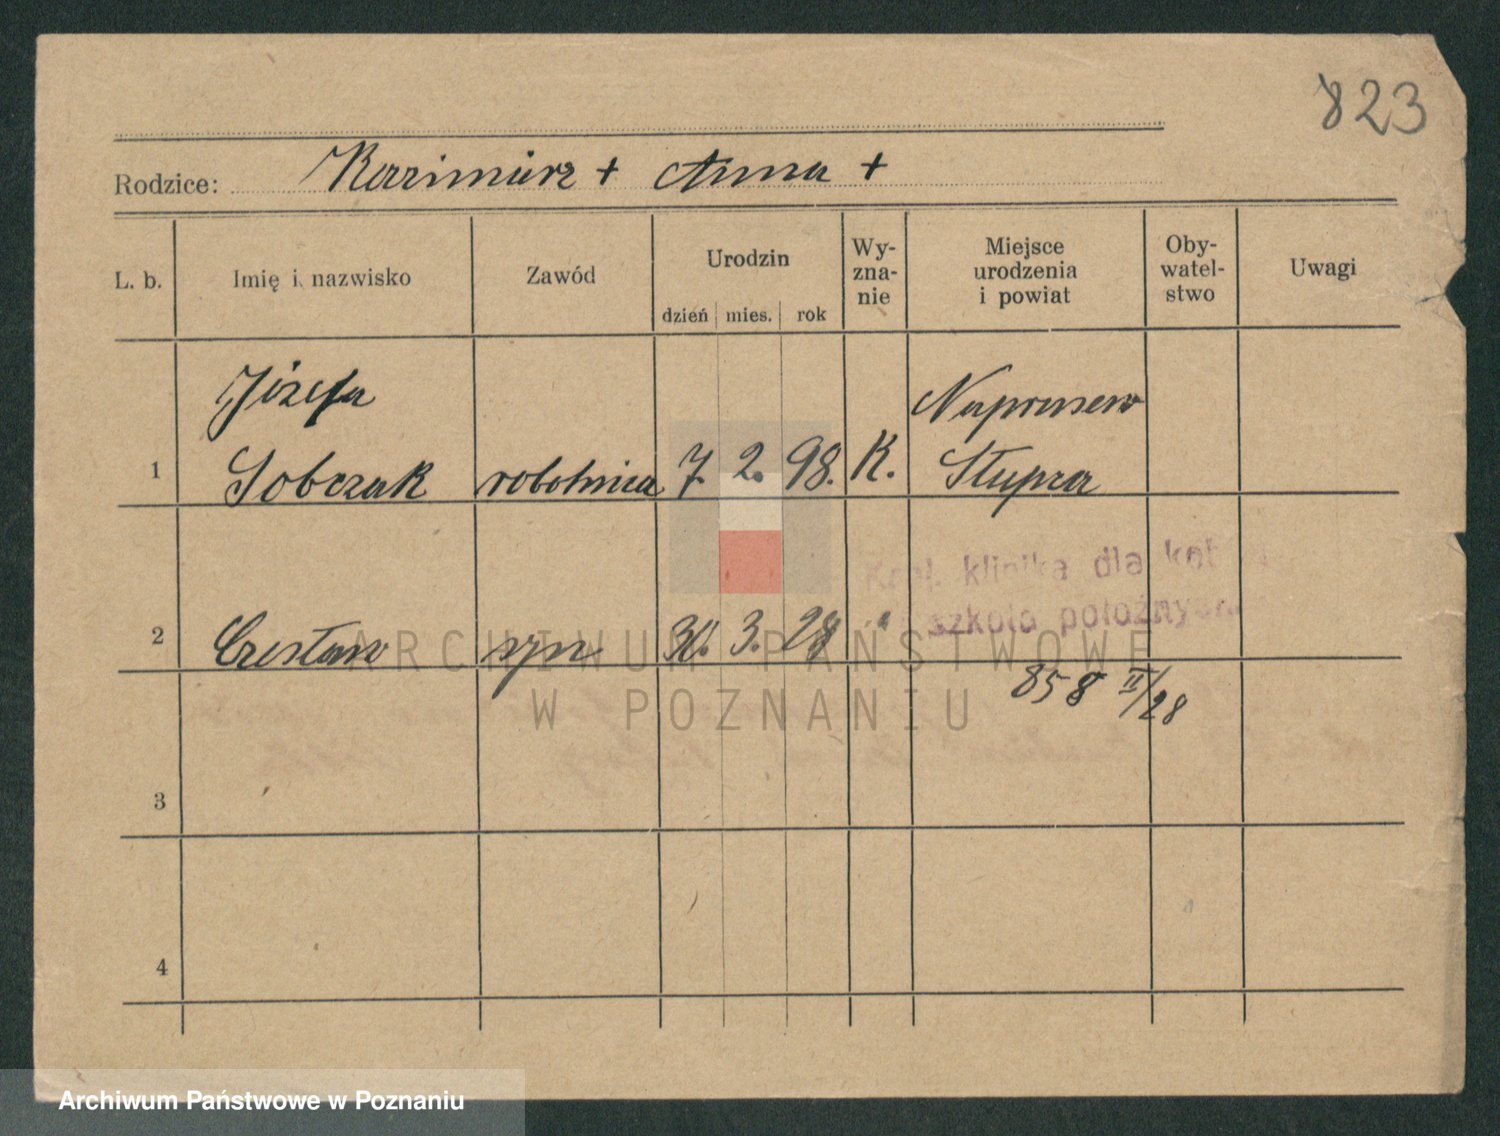 823
Rodzice: Kazimierz + Anna +
L. b. Imię i nazwisko Zawód Urodzin dzień mies. rok Wy-zna-nie Miejsce urodzenia i powiat Oby-watel-stwo Uwagi
Józefa Naprusewo
1 Sobczak robotnica 7. 2. 98. K. Słupca
klinika dla kobiet
szkoła położnych
2 Czesław syn 30. 3. 28 "
858 II/28
3
4
ARCHIWUM PAŃSTWOWE
W POZNANIU
Archiwum Państwowe w Poznaniu